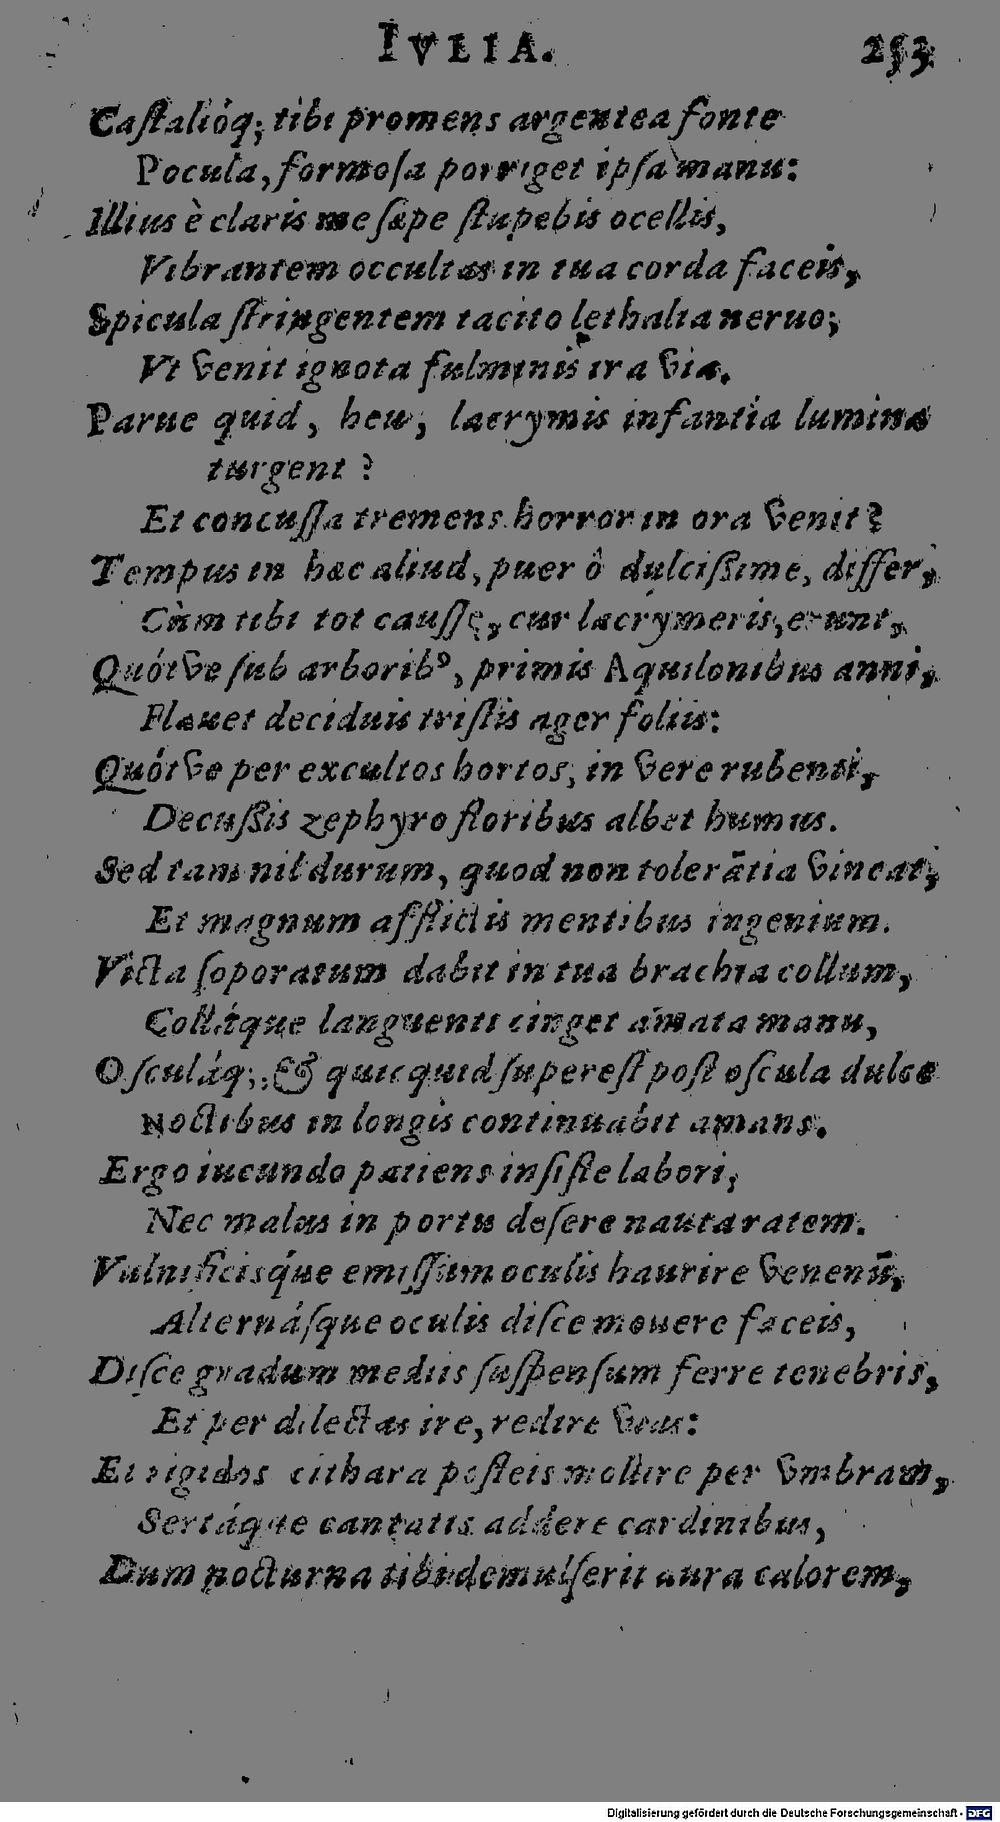 IVLIA. 253
Caſtalióq; tibi promens argentea fonte
Pocula, formoſa porriget ipſa manu:
Illius è claris me ſæpe ſtupebis ocellis,
Vibrantem occultas in tua corda faceis,
Spicula ſtringentem tacito lethalia neruo;
Vt venit ignota fulminis ira via.
Parue quid, heu, lacrymis infantia lumina
turgent?
Et concuſſa tremens horror in ora venit?
Tempus in hæc aliud, puer ô dulciſsime, differ,
Cùm tibi tot cauſſę, cur lacrymeris, erunt,
Quótve ſub arborib⁹, primis Aquilonibus anni,
Flauet deciduis triſtis ager foliis:
Quótve per excultos hortos, in vere rubenti,
Decuſsis zephyro floribus albet humus.
Sed tam nil durum, quod non tolerãtia vincat,
Et magnum afflictis mentibus ingenium.
Victa ſoporatum dabit in tua brachia collum,
Colláque languenti cinget amata manu,
Oſculáq;, & quicquid ſupereſt poſt oſcula dulce
Noctibus in longis continuabit amans.
Ergo iucundo patiens inſiſte labori,
Nec malus in portu deſere nauta ratem.
Vulnificiſque emiſſum oculis haurire venenũ,
Alternáſque oculis diſce mouere faceis,
Diſce gradum mediis ſuſpenſum ferre tenebris,
Et per dilectas ire, redire vias:
Et rigidos cithara poſteis mollire per vmbram,
Sertáque cantatis addere cardinibus,
Dum nocturna tibi demulſerit aura calorem,
Digitalisierung gefördert durch die Deutsche Forschungsgemeinschaft - DFG